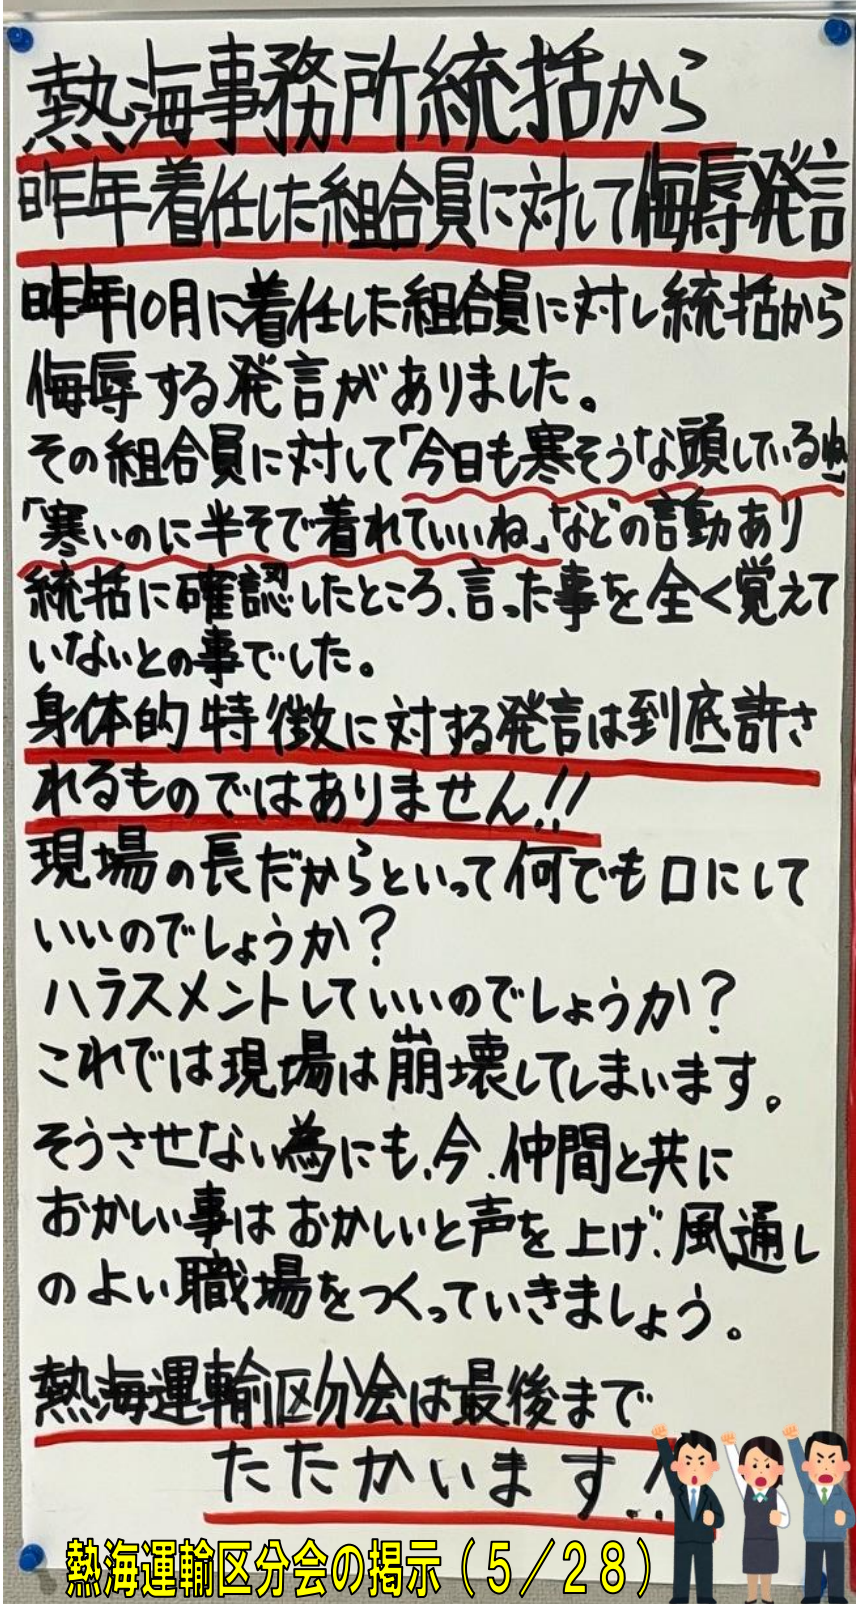 熱海事務所統括から
昨年着任した組合員に対して侮辱発言
昨年10月に着任した組合員に対し統括から
侮辱する発言がありました。
その組合員に対して「今日も寒そうな頭しているね」
「寒いのに半そで着れていいね」などの言動あり
統括に確認したところ、言った事を全く覚えて
いないとの事でした。
身体的特徴に対する発言は到底許さ
れるものではありません!!
現場の長だからといって何でも口にして
いいのでしょうか?
ハラスメントしていいのでしょうか?
これでは現場は崩壊してしまいます。
そうさせない為にも、今、仲間と共に
おかしい事はおかしいと声を上げ、風通し
のよい職場をつくっていきましょう。
熱海運輸区分会は最後まで
たたかいます!!
熱海運輸区分会の掲示(5/28)